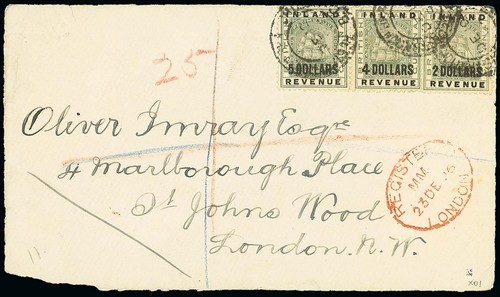 INLAND INLAND INLAND
5 DOLLARS 4 DOLLARS 2 DOLLARS
REVENUE REVENUE REVENUE
25
Oliver Imray Esqre
4 Marlborough Place
St Johns Wood
London. N. W.
REGISTERED
MM
23 DE 96
LONDON
11
X01